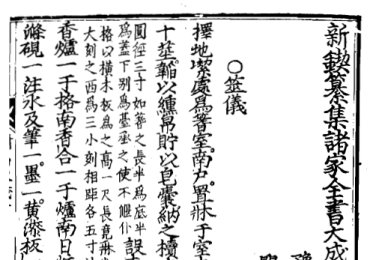 新鍥纂集諸家全書大成
○筮儀
擇地潔處為蓍室南戶置牀于室
十莖韜以纁帛貯以皂囊納之櫝
圓徑三寸如蓍之長半為底半
為蓋下別為臺函之使不偃仆
設
格以橫木板為之高一尺長竟牀
大刻之西為三小刻相距各五寸
香爐一于格南香合一于爐南日
滌硯一注水及筆一墨一黃漆板